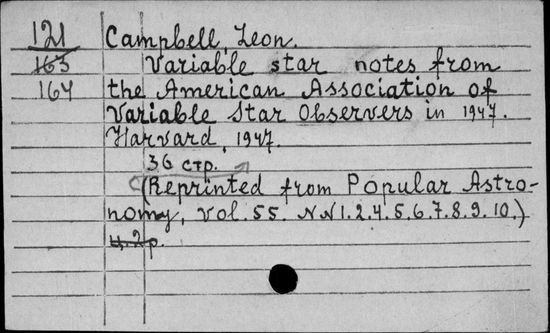 121 Campbell, Leon.
163 Variable star notes from
164 the American Association of
Variable Star Observers in 1947.
Harvard, 1947.
36 стр.
(Reprinted from Popular Astro-
nomy, Vol. 55. NN 1.2.4.5.6.7.8.9.10.)
ц. 2р.